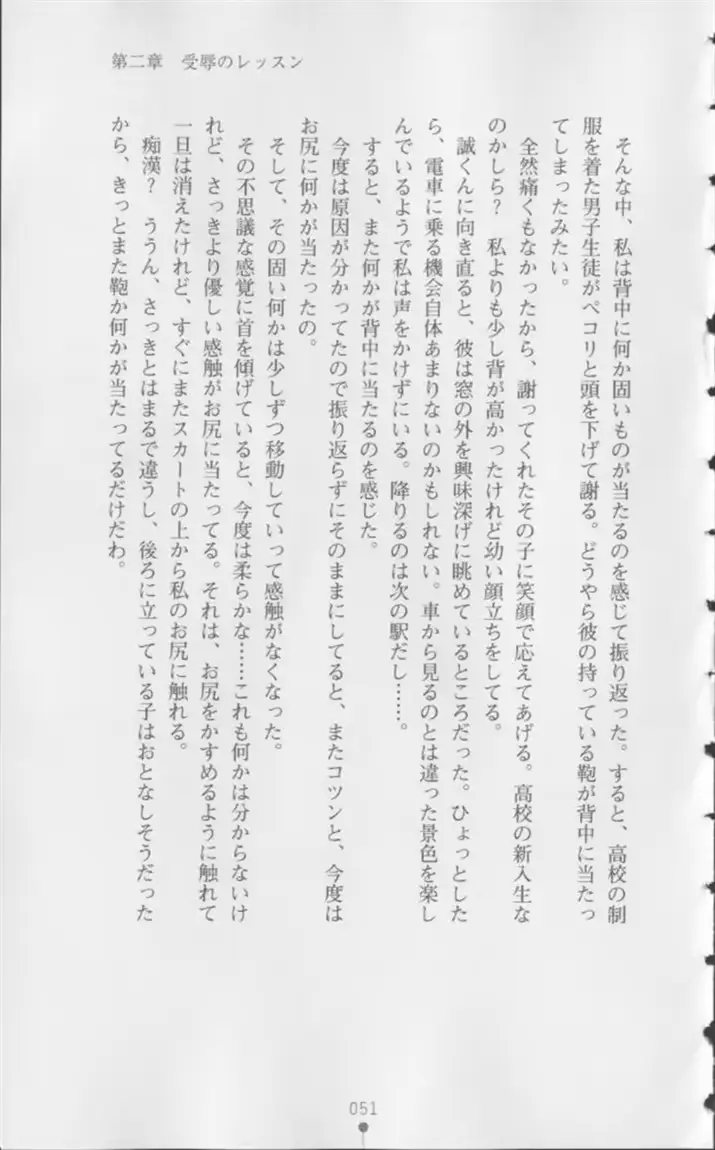 第二章　受辱のレッスン
そんな中、私は背中に何か固いものが当たるのを感じて振り返った。すると、高校の制
服を着た男子生徒がペコリと頭を下げて謝る。どうやら彼の持っている鞄が背中に当たっ
てしまったみたい。
全然痛くもなかったから、謝ってくれたその子に笑顔で応えてあげる。高校の新入生な
のかしら？　私よりも少し背が高かったけれど幼い顔立ちをしてる。
誠くんに向き直ると、彼は窓の外を興味深げに眺めているところだった。ひょっとした
ら、電車に乗る機会自体あまりないのかもしれない。車から見るのとは違った景色を楽し
んでいるようで私は声をかけずにいる。降りるのは次の駅だし……。
すると、また何かが背中に当たるのを感じた。
今度は原因が分かってたので振り返らずにそのままにしてると、またコツンと、今度は
お尻に何かが当たったの。
そして、その固い何かは少しずつ移動していって感触がなくなった。
その不思議な感覚に首を傾げていると、今度は柔らかな……これも何かは分からないけ
れど、さっきより優しい感触がお尻に当たってる。それは、お尻をかすめるように触れて
一旦は消えたけれど、すぐにまたスカートの上から私のお尻に触れる。
痴漢？　ううん、さっきとはまるで違うし、後ろに立っている子はおとなしそうだった
から、きっとまた鞄か何かが当たってるだけだわ。
051